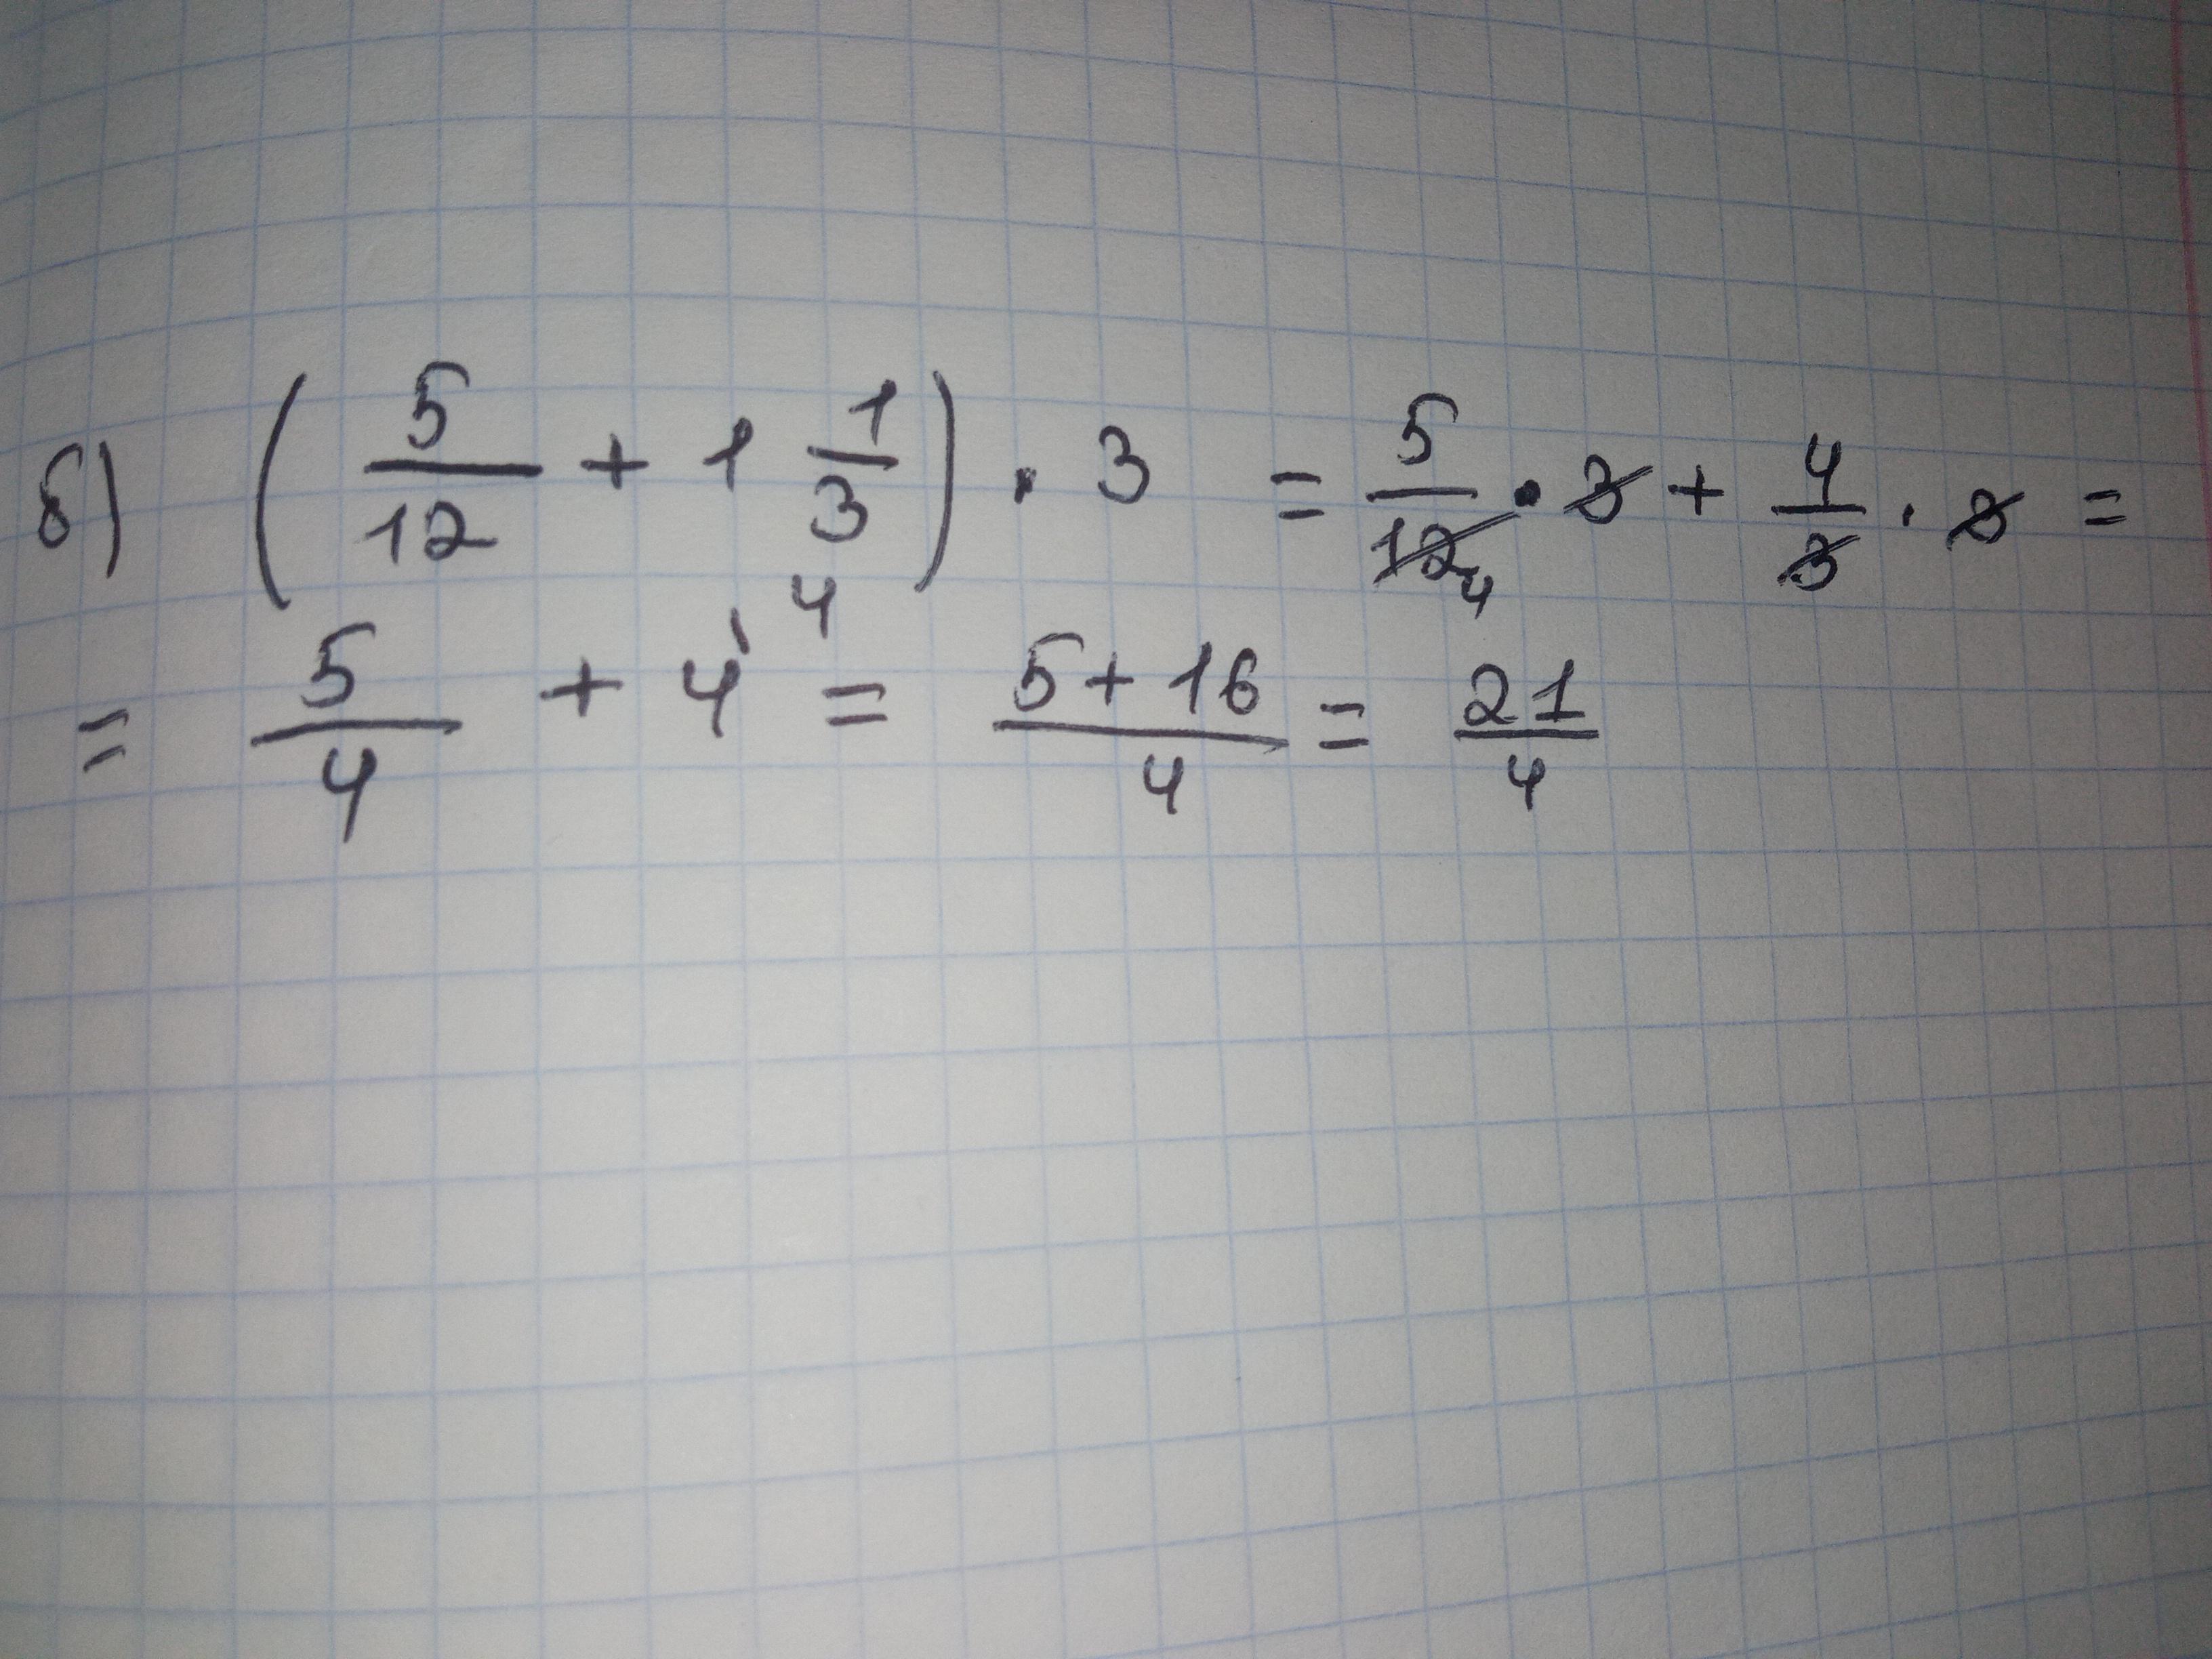 б) (5/12 + 1 1/3) · 3 = 5/12 4 · 3 + 4/3 · 3 =
= 5/4 + 4 \4 = 5+16/4 = 21/4